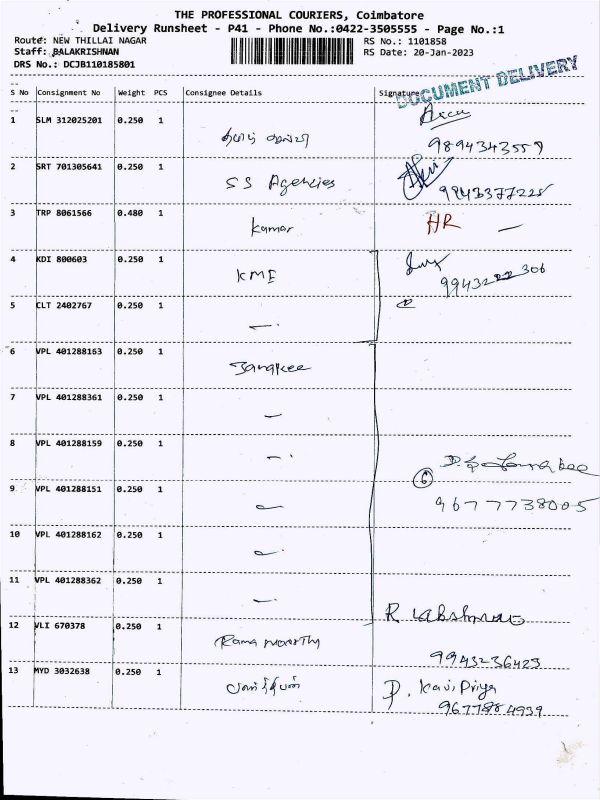 THE PROFESSIONAL COURIERS, Coimbatore
Delivery Runsheet - P41 - Phone No.:0422-3505555 - Page No.:1
Route: NEW THILLAI NAGAR RS No.: 1101858
Staff: BALAKRISHNAN RS Date: 20-Jan-2023
DRS No.: DCJB110185801
DOCUMENT DELIVERY
S No Consignment No Weight PCS Consignee Details Signature
1 SLM 312025201 0.250 1
9894343559
2 SRT 701305641 0.250 1 SS Agencies
9843377225
3 TRP 8061566 0.480 1 Kumar HR —
4 KDI 800603 0.250 1 KME
9943222306
5 CLT 2402767 0.250 1 —
6 VPL 401288163 0.250 1 Janakee
7 VPL 401288361 0.250 1 —
8 VPL 401288159 0.250 1 —
6
9 VPL 401288151 0.250 1 — 9677738005
10 VPL 401288162 0.250 1 —
11 VPL 401288362 0.250 1 —
12 VLI 670378 0.250 1 Rama moorthy
9943236425
13 MYD 3032638 0.250 1 P. KaviPriya
9677884939